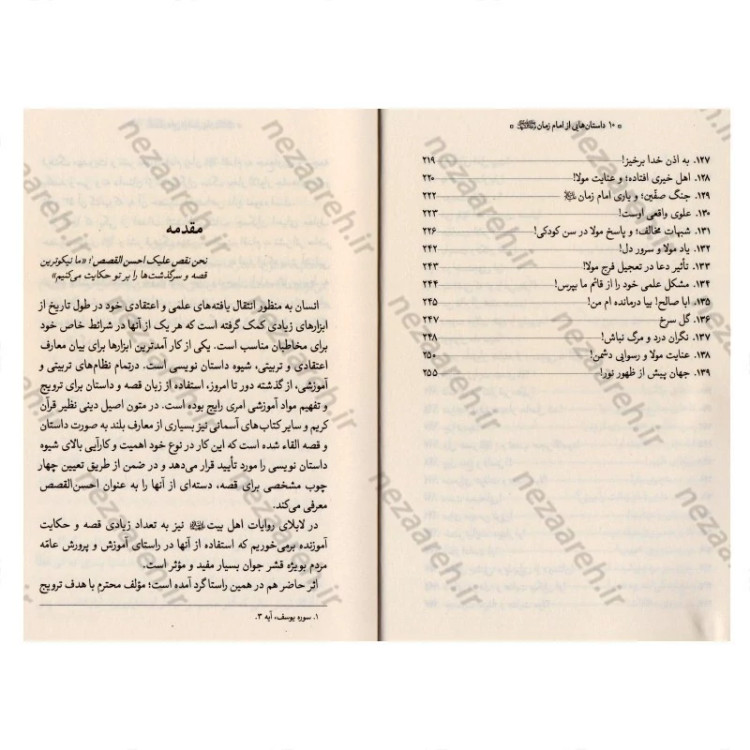 « ۱۰ داستان‌هایی از امام زمان ﷺ »
۱۲۷. به اذن خدا برخیز! ۲۱۹
۱۲۸. اهل خیری افتاده؛ و عنایت مولا! ۲۲۰
۱۲۹. جنگ صفّین؛ و یاری امام زمان ۲۲۲
۱۳۰. علوی واقعی اوست! ۲۲۳
۱۳۱. شبهات مخالف؛ و پاسخ مولا در سن کودکی! ۲۲۶
۱۳۲. یاد مولا؛ و سرور دل! ۲۴۲
۱۳۳. تأثیر دعا در تعجیل فرج مولا! ۲۴۳
۱۳۴. مشکل علمی خود را از قائم ما بپرس! ۲۴۴
۱۳۵. ابا صالح! بیا درمانده ام من! ۲۴۵
۱۳۶. گل سرخ ۲۴۷
۱۳۷. نگران درد و مرگ نباش! ۲۴۸
۱۳۸. عنایت مولا و رسوایی دشمن! ۲۵۰
۱۳۹. جهان پیش از ظهور نور! ۲۵۵
مقدمه
نحن نقص علیک احسن القصص؛۱ «ما نیکوترین
قصه و سرگذشت‌ها را بر تو حکایت می‌کنیم»
انسان به منظور انتقال یافته‌های علمی و اعتقادی خود در طول تاریخ از
ابزارهای زیادی کمک گرفته است که هر یک از آنها در شرائط خاص خود
برای مخاطبان مناسب است. یکی از کار آمدترین ابزارها برای بیان معارف
اعتقادی و تربیتی، شیوه داستان نویسی است. درتمام نظام‌های تربیتی و
آموزشی، از گذشته دور تا امروز، استفاده از زبان قصه و داستان برای ترویج
و تفهیم مواد آموزشی امری رایج بوده است. در متون اصیل دینی نظیر قرآن
کریم و سایر کتاب‌های آسمانی نیز بسیاری از معارف بلند به صورت داستان
و قصه القاء شده است که این کار در نوع خود اهمیت و کارآیی بالای شیوه
داستان نویسی را مورد تأیید قرار می‌دهد و در ضمن از طریق تعیین چهار
چوب مشخصی برای قصه، دسته‌ای از آنها را به عنوان احسن‌القصص
معرفی می‌کند.
در لابلای روایات اهل بیت نیز به تعداد زیادی قصه و حکایت
آموزنده برمی‌خوریم که استفاده از آنها در راستای آموزش و پرورش عامّه
مردم بویژه قشر جوان بسیار مفید و مؤثر است.
اثر حاضر هم در همین راستا گرد آمده است؛ مؤلف محترم با هدف ترویج
۱. سوره یوسف، آیه ۳.
nezaareh.ir